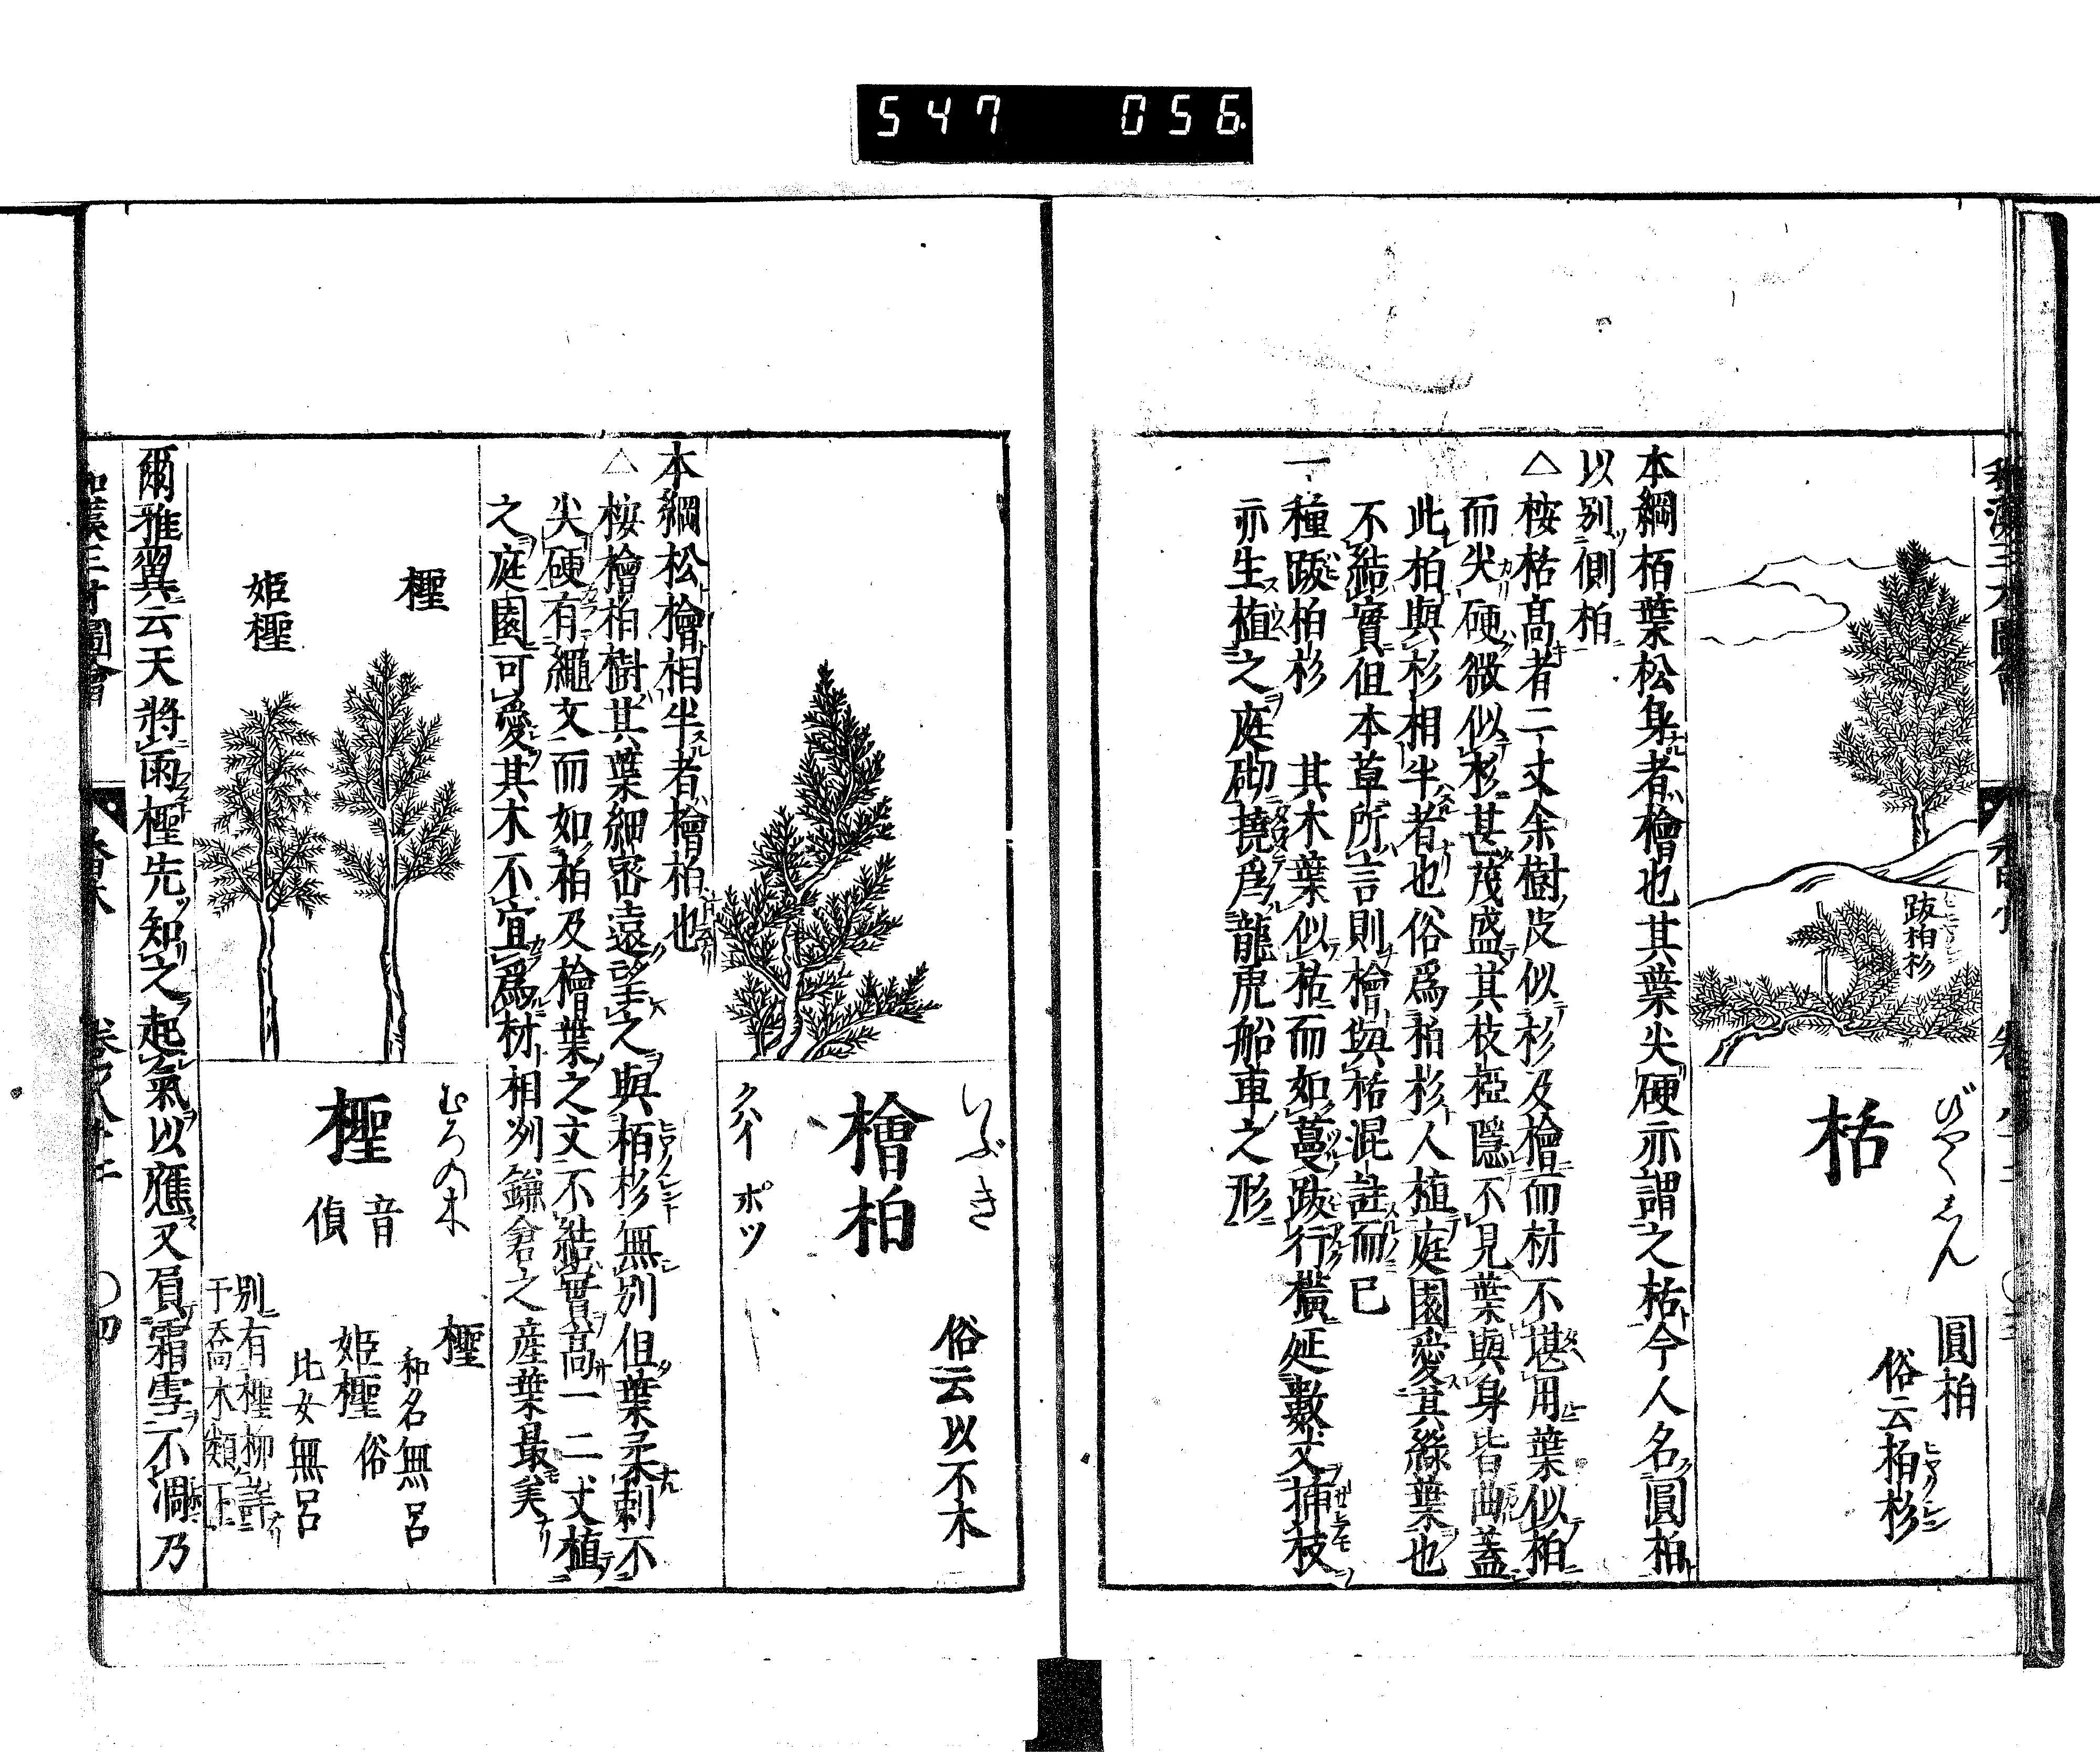 547 056
跋柏杉
びやくしん
栝
圓柏
俗云柏杉
本綱栢葉松身者檜也其葉尖硬亦謂之栝今人名圓柏
以別側柏
△桉栝髙者二丈余樹皮似杉及檜而材不堪用葉似柏
而尖硬微似杉甚茂盛其枝椏隱不見葉與身皆曲蓋
此柏與杉相半者也俗爲柏杉人植庭園愛其緑葉也
不結實但本草所言則檜與栝混註而已
一種跋柏杉　其木葉似栝而如蔓跋行橫延數丈揷枝
亦生植之庭砌撓爲龍虎船車之形
いぶき
檜柏
俗云以不木
クハイ ポツ
本綱松檜相半者檜柏也
△桉檜柏樹其葉細宻遠望之與栢杉無別但葉柔刺不
尖硬有繩文而如柏及檜葉之文不結實髙一二丈植
之庭園可愛其木不宜爲材相州鎌倉之産葉最美
檉
姫檉
むろの木
檉
音
偵
檉
和名無呂
姫檉 俗
比女無呂
別有檉柳詳
于喬木類下
爾雅翼云天將雨檉先知之起氣以應又負霜雪不凋乃